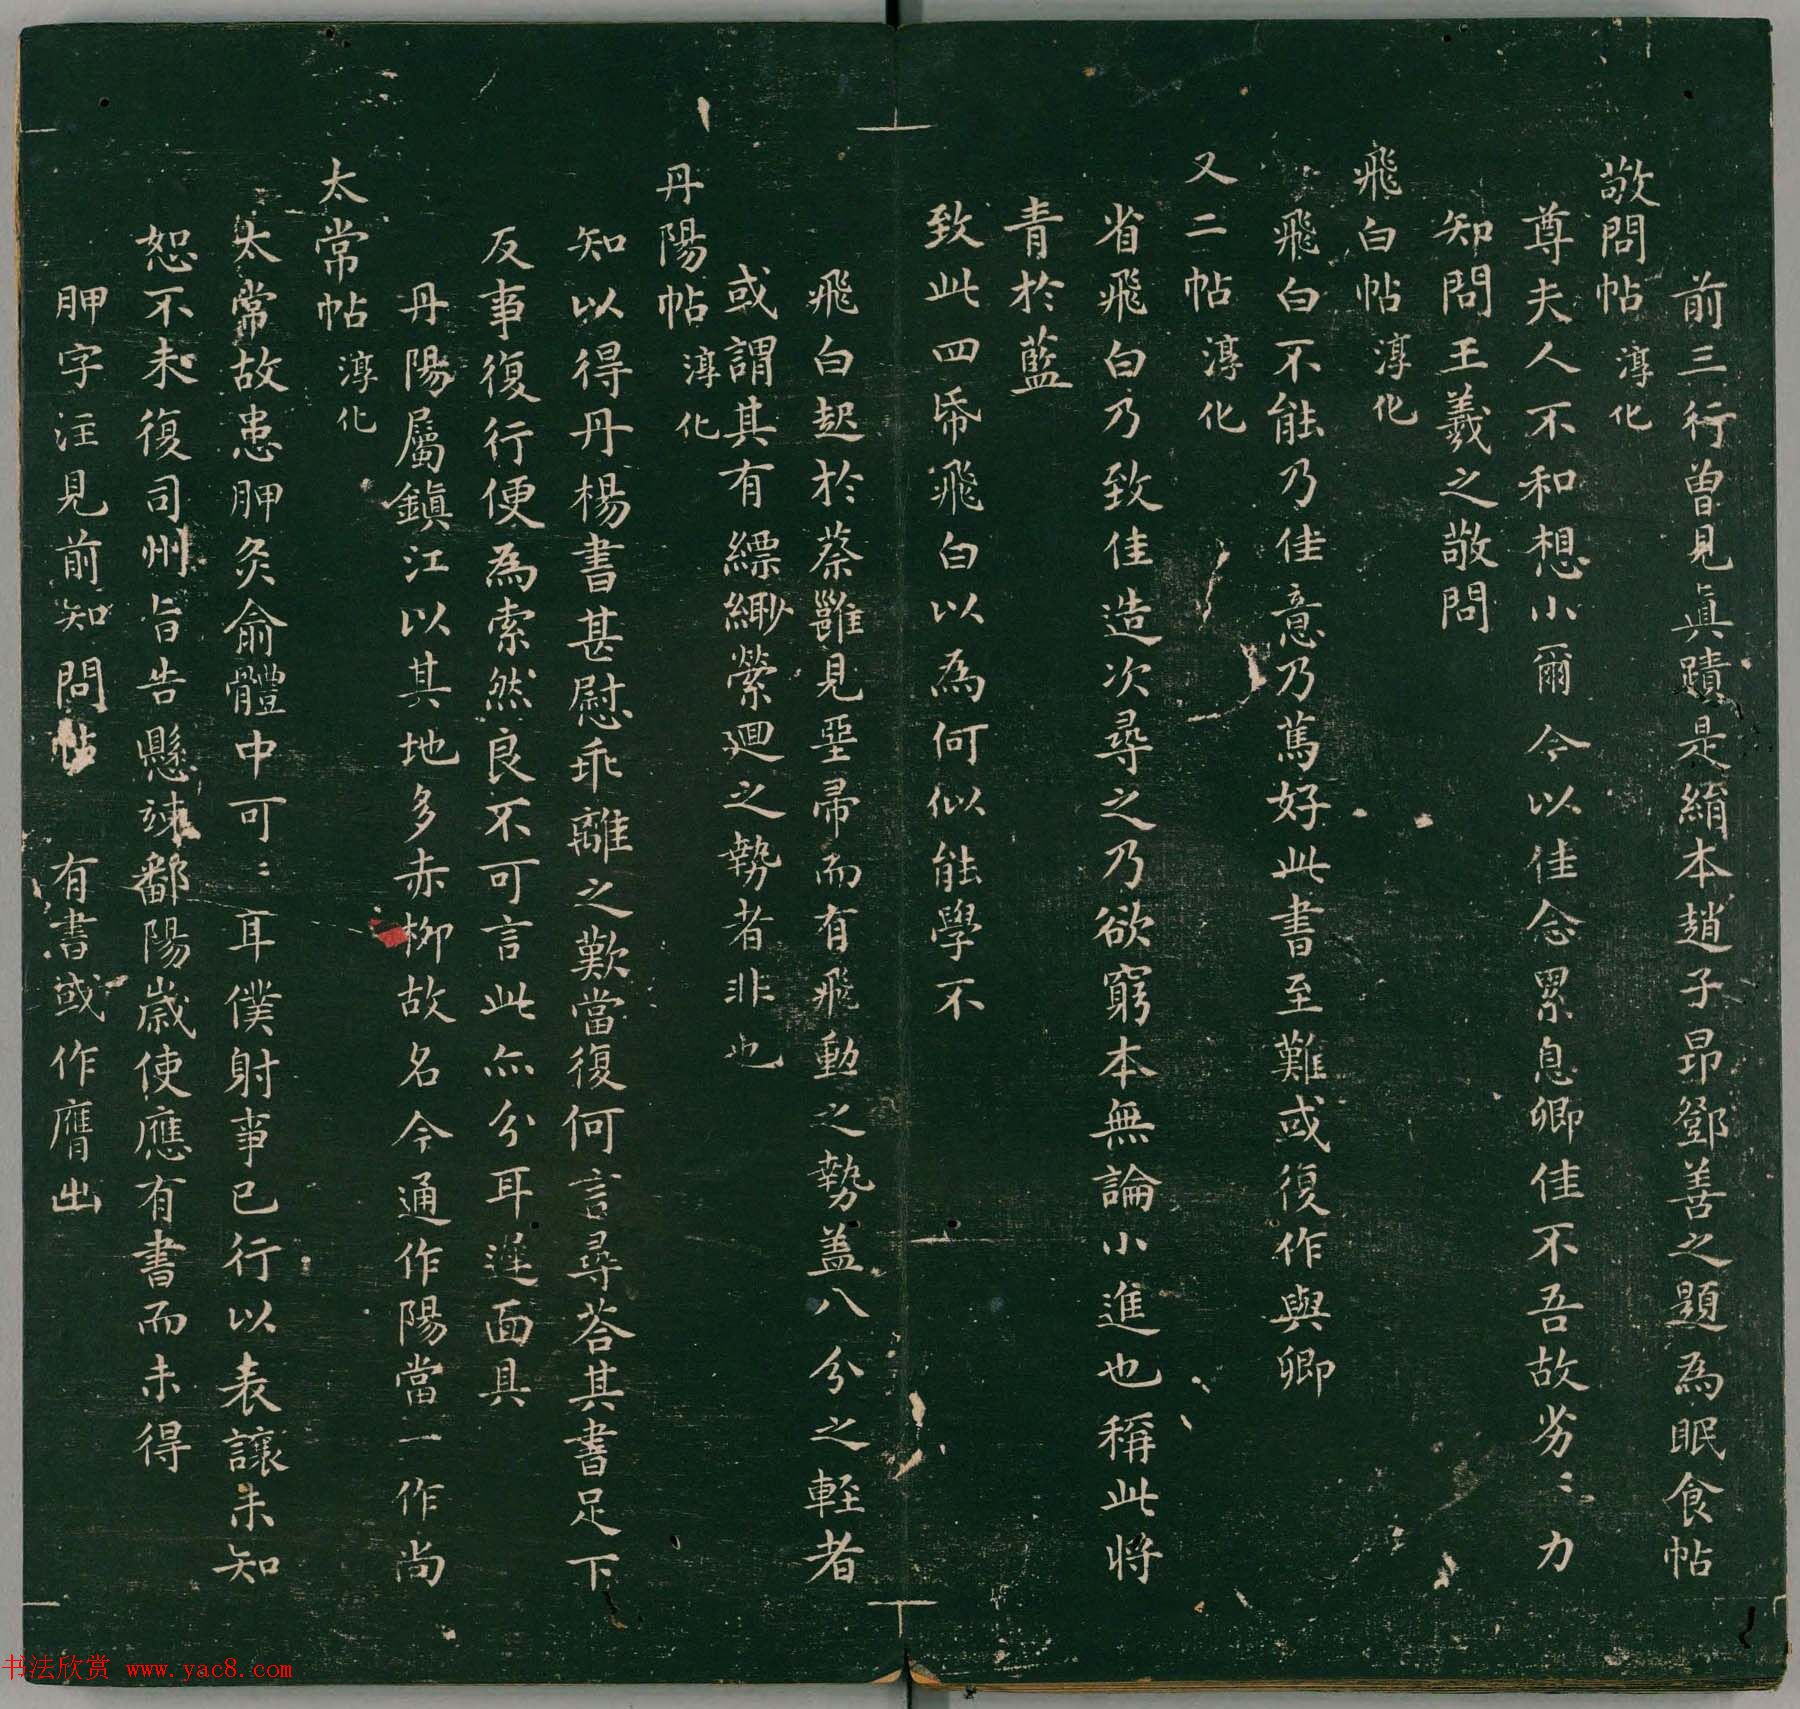 前三行曾見真蹟是絹本趙子昂鄧善之題為眠食帖
敬問帖 淳化
尊夫人不和想小爾今以佳念累息卿佳不吾故劣〻力
知問王羲之敬問
飛白帖 淳化
飛白不能乃佳意乃篤好此書至難或復作與卿
又二帖 淳化
省飛白乃致佳造次尋之乃欲窮本無論小進也稱此將
青於藍
致此四帋飛白以為何似能學不
飛白起於蔡邕見堊帚而有飛動之勢蓋八分之輕者
或謂其有縹緲縈迴之勢者非也
丹陽帖 淳化
知以得丹楊書甚慰乖離之歎當復何言尋荅其書足下
反事復行便為索然良不可言此亦分耳遲面具
丹陽屬鎮江以其地多赤柳故名今通作陽當一作尚
太常帖 淳化
太常故患胛灸俞體中可〻耳僕射事已行以表讓未知
恕不未復司州旨告懸竦鄱陽歲使應有書而未得
胛字注見前知問帖 有書或作膺出
书法欣赏 www.yac8.com